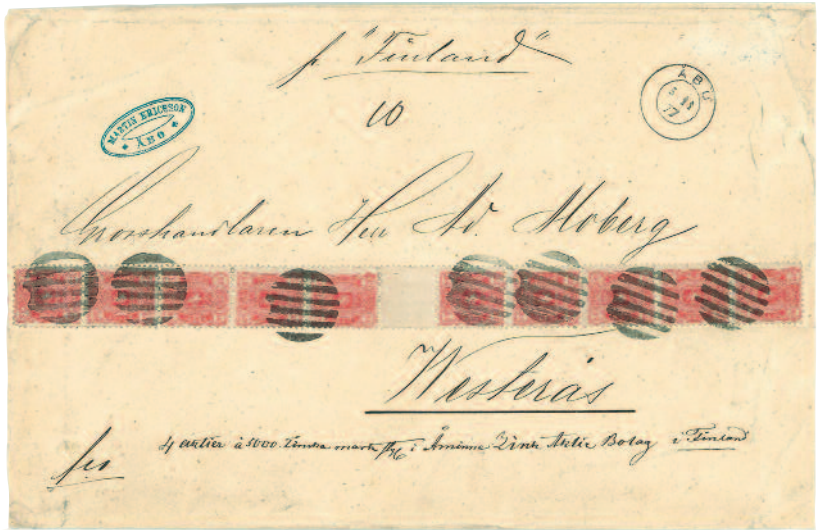 p. "Finland"
ÅBO
11
77
10
MARTIN ERICSSON
ÅBO
Grosshandlaren Herr Ad. Moberg
Westerås
4 aktier à 1000 Finska mark i Åminne Zink Aktie Bolag i Finland